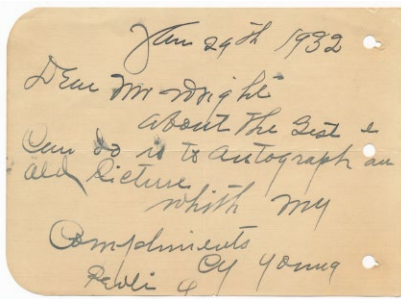 Jan 29th 1932
Dear Mr Wright
About The Best I
Can do is to Autograph an
old Picture
whith My
Compliments
Cy Young
Peoli O